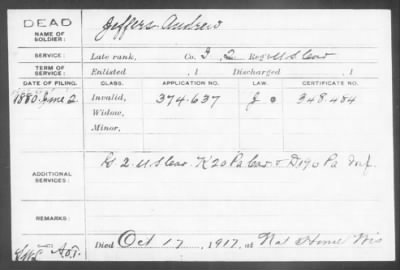 DEAD
NAME OF SOLDIER:
Jeffers Andrew
SERVICE:
Late rank, Co. I, 2 Reg't U S Cav
TERM OF SERVICE:
Enlisted , 1 Discharged , 1
DATE OF FILING. CLASS. APPLICATION NO. LAW. CERTIFICATE NO.
1880 June 2 Invalid, 374.637 348.484
Widow,
Minor,
ADDITIONAL SERVICES:
G 2 U.S Cav. K 20 Pa Cav & D 190 Pa Inf.
REMARKS:
Died Oct 17, 1917, at Nat Home Wis